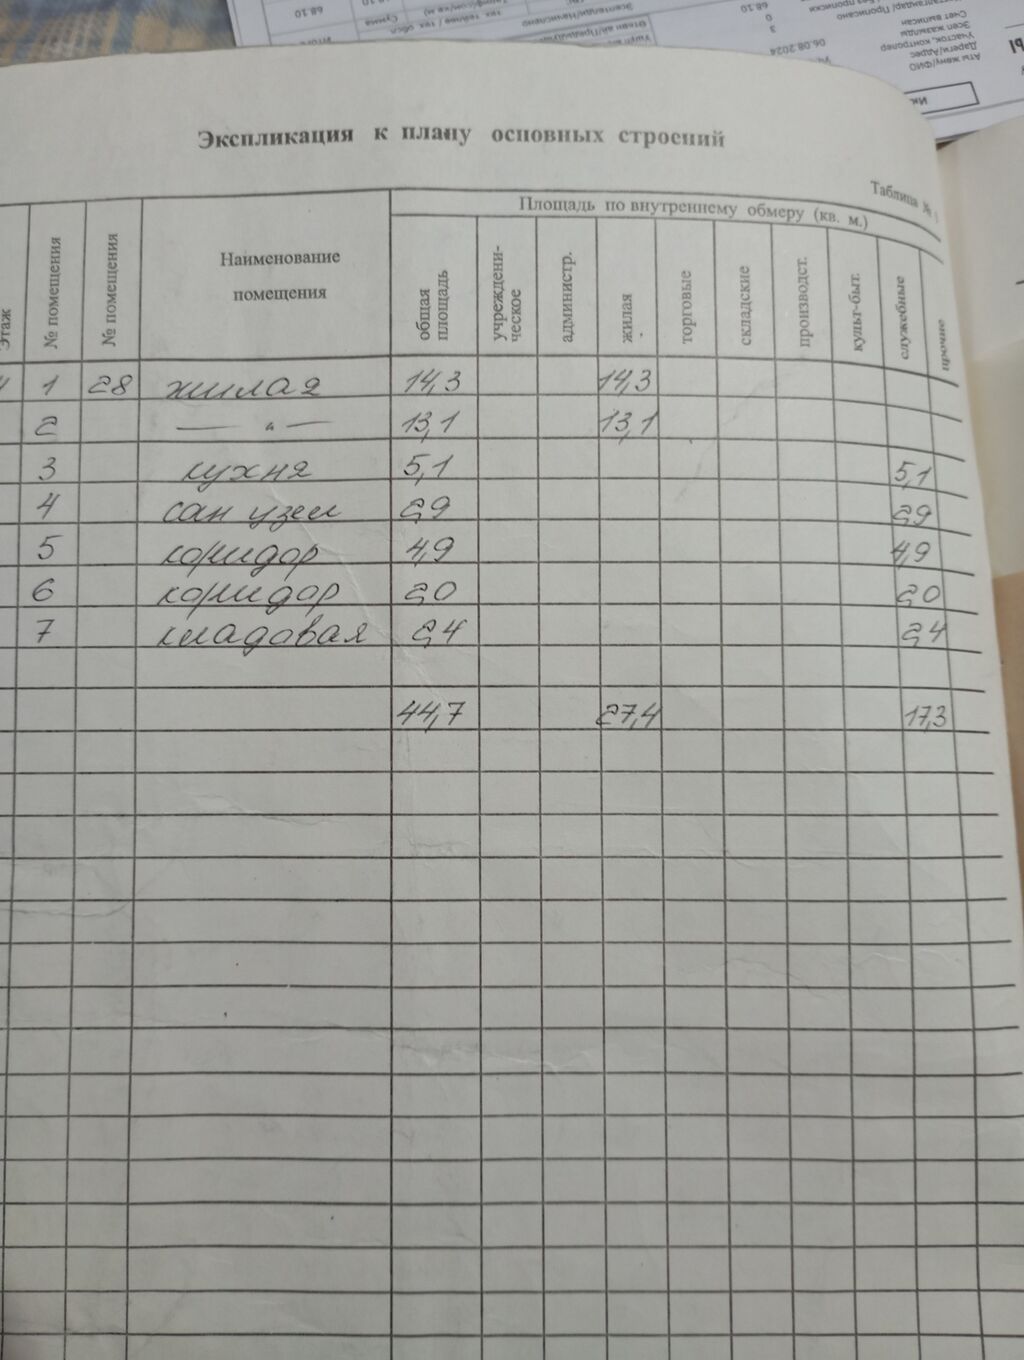 Экспликация к плану основных строений
Таблица №
Площадь по внутреннему обмеру (кв. м.)
Этаж № помещения № помещения Наименование помещения общая площадь учреждени-ческое администр. жилая торговые складские производст. культ-быт. служебные прочие
1 28 жилая 14,3 14,3
2 — " — 13,1 13,1
3 кухня 5,1 5,1
4 сан узел 2,9 2,9
5 коридор 4,9 4,9
6 коридор 2,0 2,0
7 кладовая 2,4 2,4
44,7 27,4 17,3
Аты жөнү/ФИО
Дареги/Адрес
Участок, контролер
Эсеп жазылды
Счет выписан
06.08.2024
3
0
68.10
68.10
Сумма